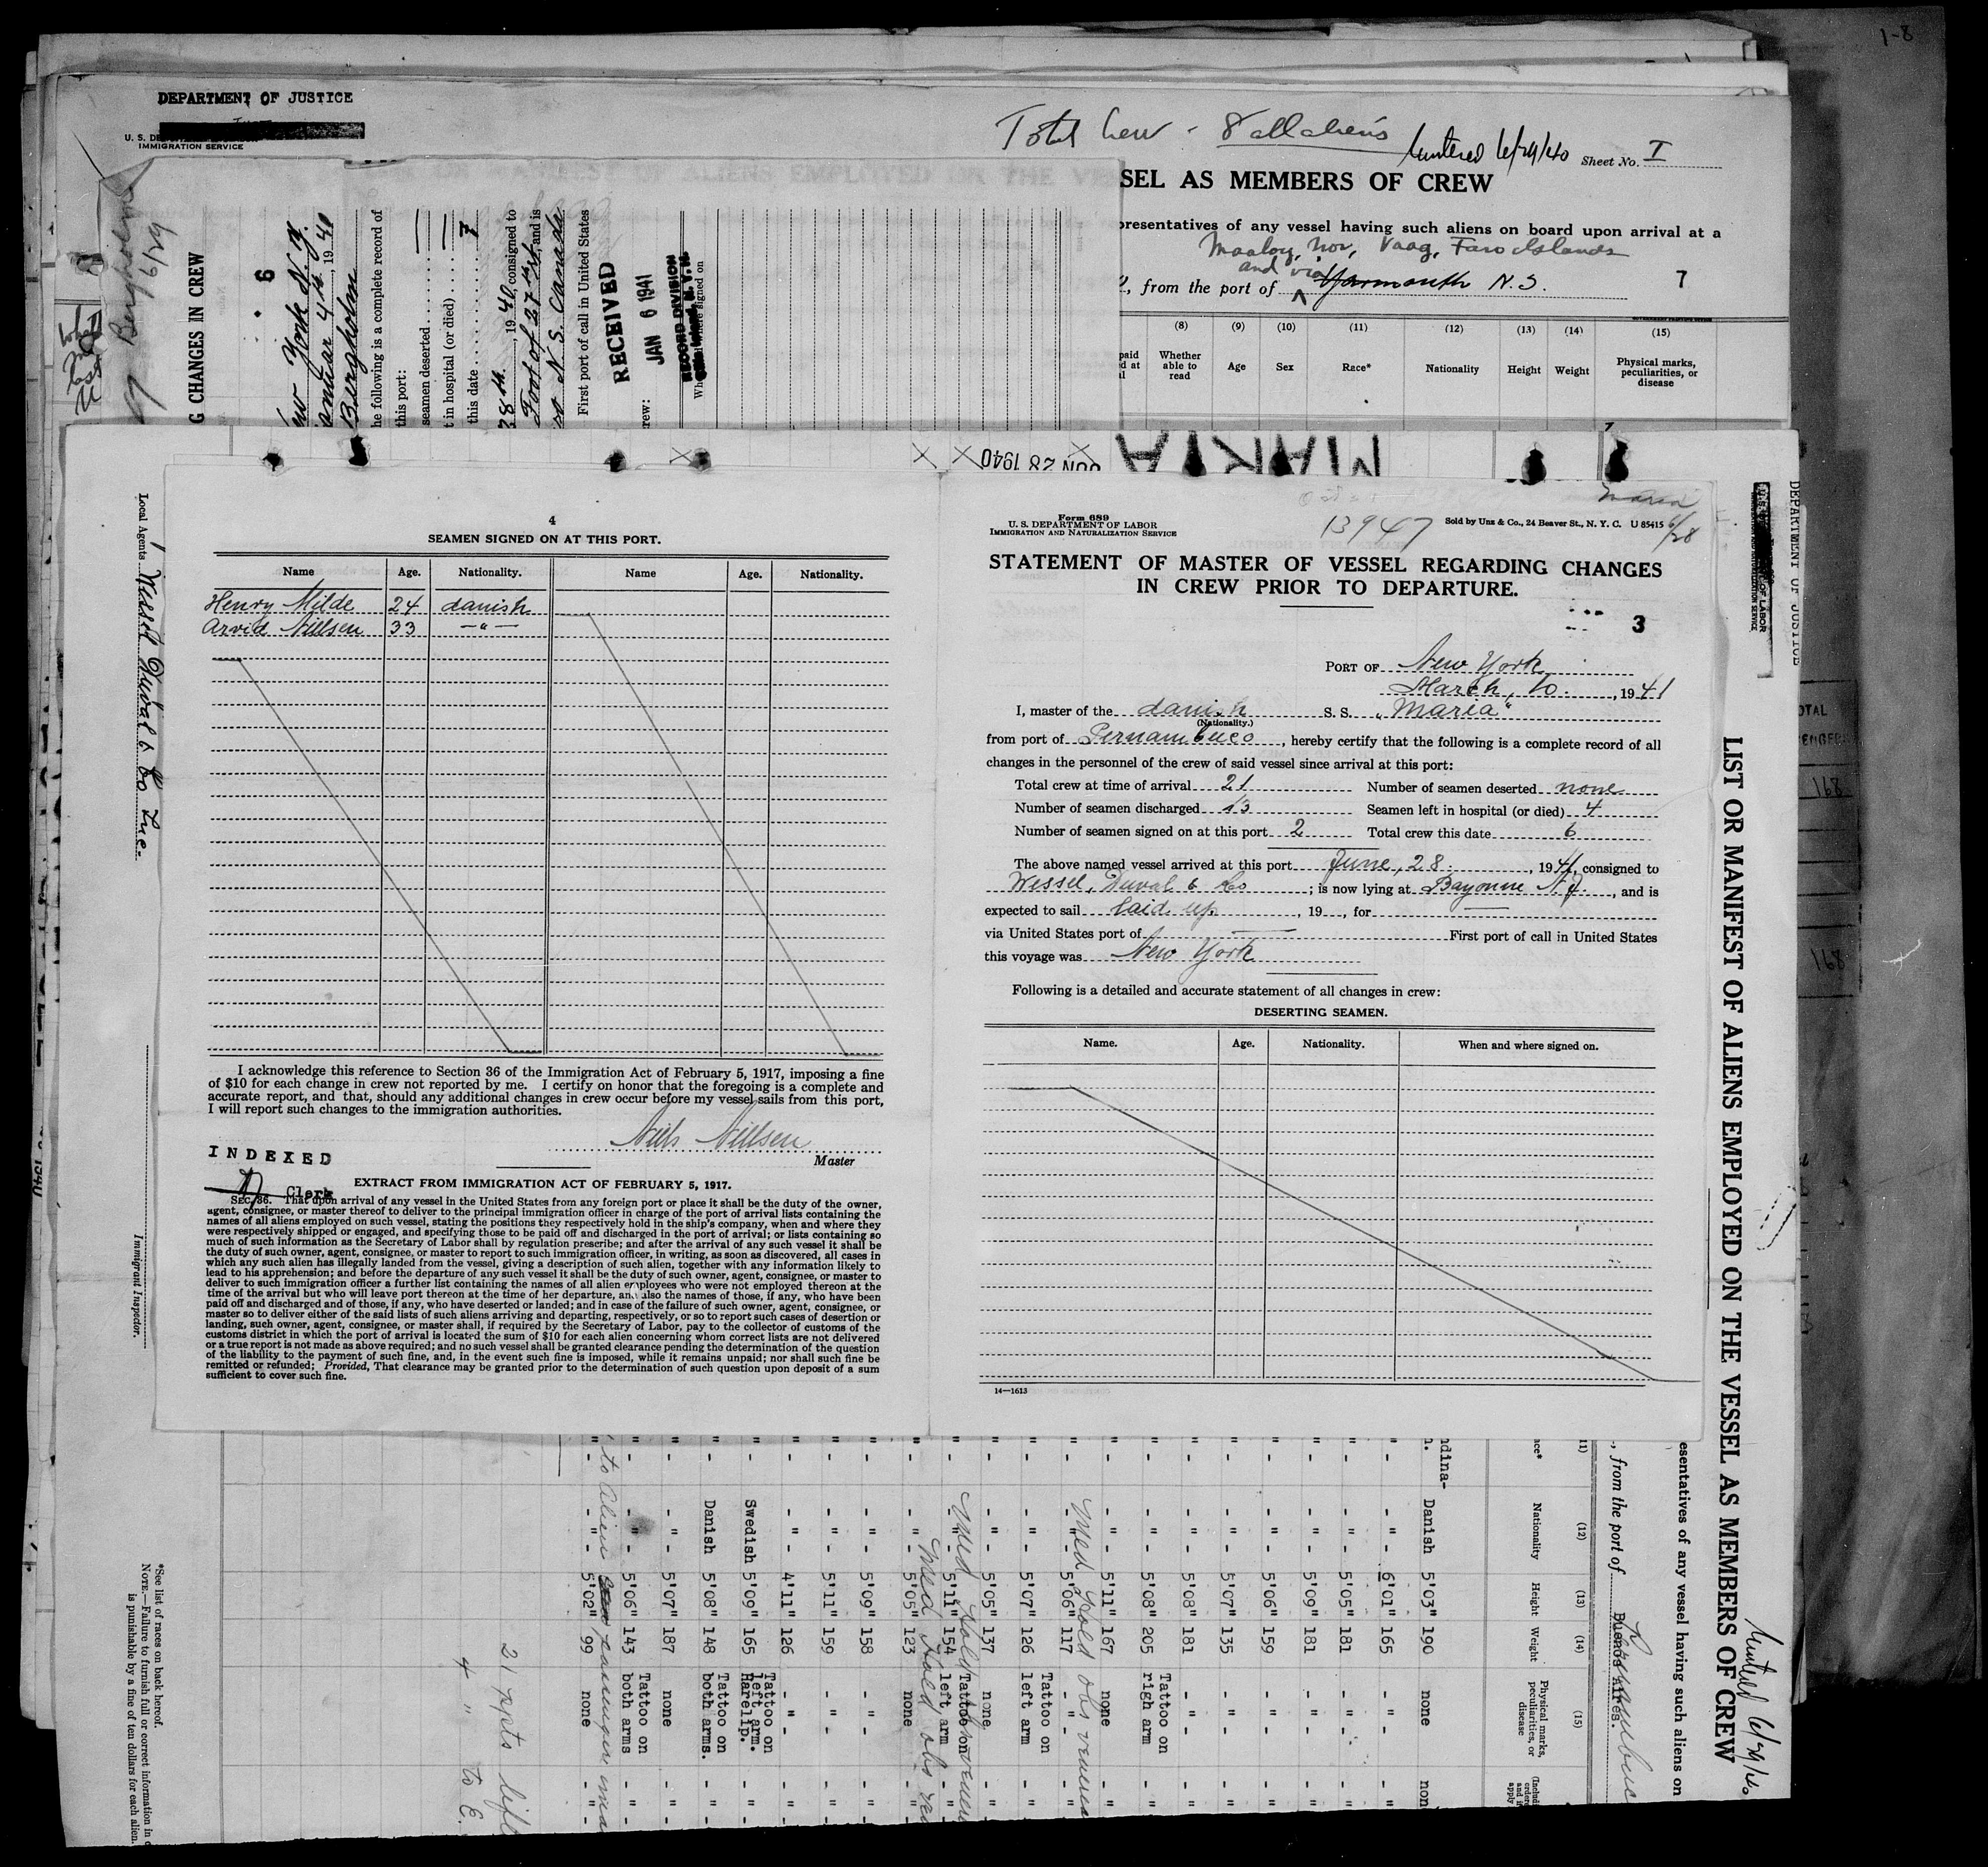 1-8
DEPARTMENT OF JUSTICE
IMMIGRATION SERVICE
Total Crew - 8 all aliens
6/29/40 Sheet No. I
SEL AS MEMBERS OF CREW
presentatives of any vessel having such aliens on board upon arrival at a
Maaloy, Nor, Vaag, Faro Islands
and via
, from the port of Yarmouth N.S.
7
(8) (9) (10) (11) (12) (13) (14) (15)
Whether able to read Age Sex Race* Nationality Height Weight Physical marks, peculiarities, or disease
Bergholm
6/29
G CHANGES IN CREW
6
ew York N.Y.
anuar 4th, 1941
Bergholm
he following is a complete record of
this port:
seamen deserted
t in hospital (or died)
this date 7
28th, 1940, consigned to
Foot of 27th St, and is
N.S. Canada
First port of call in United States
RECEIVED
JAN 6 1941
RECORD DIVISION
rew:
JUN 28 1940
MARIA
Local Agents Wessel Duval & Co Inc.
Immigrant Inspector.
4
SEAMEN SIGNED ON AT THIS PORT.
Name Age. Nationality. Name Age. Nationality.
Henry Milde 24 danish
Arvid Nielsen 33 -"-
I acknowledge this reference to Section 36 of the Immigration Act of February 5, 1917, imposing a fine
of $10 for each change in crew not reported by me. I certify on honor that the foregoing is a complete and
accurate report, and that, should any additional changes in crew occur before my vessel sails from this port,
I will report such changes to the immigration authorities.
Niels Nielsen
Master
INDEXED
Clerk
EXTRACT FROM IMMIGRATION ACT OF FEBRUARY 5, 1917.
SEC. 36. That upon arrival of any vessel in the United States from any foreign port or place it shall be the duty of the owner,
agent, consignee, or master thereof to deliver to the principal immigration officer in charge of the port of arrival lists containing the
names of all aliens employed on such vessel, stating the positions they respectively hold in the ship's company, when and where they
were respectively shipped or engaged, and specifying those to be paid off and discharged in the port of arrival; or lists containing so
much of such information as the Secretary of Labor shall by regulation prescribe; and after the arrival of any such vessel it shall be
the duty of such owner, agent, consignee, or master to report to such immigration officer, in writing, as soon as discovered, all cases in
which any such alien has illegally landed from the vessel, giving a description of such alien, together with any information likely to
lead to his apprehension; and before the departure of any such vessel it shall be the duty of such owner, agent, consignee, or master to
deliver to such immigration officer a further list containing the names of all alien employees who were not employed thereon at the
time of the arrival but who will leave port thereon at the time of her departure, and also the names of those, if any, who have been
paid off and discharged and of those, if any, who have deserted or landed; and in case of the failure of such owner, agent, consignee, or
master so to deliver either of the said lists of such aliens arriving and departing, respectively, or so to report such cases of desertion or
landing, such owner, agent, consignee, or master shall, if required by the Secretary of Labor, pay to the collector of customs of the
customs district in which the port of arrival is located the sum of $10 for each alien concerning whom correct lists are not delivered
or a true report is not made as above required; and no such vessel shall be granted clearance pending the determination of the question
of the liability to the payment of such fine, and, in the event such fine is imposed, while it remains unpaid; nor shall such fine be
remitted or refunded; Provided, That clearance may be granted prior to the determination of such question upon deposit of a sum
sufficient to cover such fine.
Maria
6/28
Form 689
U. S. DEPARTMENT OF LABOR
IMMIGRATION AND NATURALIZATION SERVICE
13947
Sold by Unz & Co., 24 Beaver St., N. Y. C. U 85415
STATEMENT OF MASTER OF VESSEL REGARDING CHANGES
IN CREW PRIOR TO DEPARTURE.
3
PORT OF New York
March, 10., 1941
I, master of the danish S. S. "Maria"
(Nationality.)
from port of Pernambuco, hereby certify that the following is a complete record of all
changes in the personnel of the crew of said vessel since arrival at this port:
Total crew at time of arrival 21 Number of seamen deserted none
Number of seamen discharged 13 Seamen left in hospital (or died) 4
Number of seamen signed on at this port 2 Total crew this date 6
The above named vessel arrived at this port June, 28., 1941, consigned to
Wessel, Duval & Co; is now lying at Bayonne N.J., and is
expected to sail Laid up., 19__, for
via United States port of First port of call in United States
this voyage was New York
Following is a detailed and accurate statement of all changes in crew:
DESERTING SEAMEN.
Name. Age. Nationality. When and where signed on.
14—1613
DEPARTMENT OF JUSTICE
LIST OR MANIFEST OF ALIENS EMPLOYED ON THE VESSEL AS MEMBERS OF CREW
esentatives of any vessel having such aliens on
, from the port of Buenos Aires.
Nationality Height Weight Physical marks, peculiarities, or disease
(12) (13) (14) (15)
Danish 5'03" 190 none
- " - 6'01" 165 - " -
- " - 5'05" 181 - " -
- " - 5'09" 181 - " -
- " - 5'06" 159 - " -
- " - 5'07" 135 - " -
- " - 5'08" 181 - " -
- " - 5'08" 205 Tattoo on righ arm
- " - 5'11" 167 none
- " - 5'06" 117 - " -
Med Hold obs
- " - 5'07" 126 Tattoo on left arm
- " - 5'05" 137 none.
- " - 5'11" 154 Tattoo on left arm
Med Hold
- " - 5'05" 123 none
Med Hold obs
- " - 5'09" 158 - " -
- " - 5'11" 159 - " -
- " - 4'11" 126 - " -
Swedish 5'09" 165 Tattoo on left arm. Harelip.
Danish 5'08" 148 Tattoo on both arms.
- " - 5'07" 187 none
- " - 5'06" 143 Tattoo on both arms
- " - 5'02" 99 none
21
4 " to E.
*See list of races on back hereof.
NOTE.—Failure to furnish full or correct information in
is punishable by a fine of ten dollars for each alien.
168
168